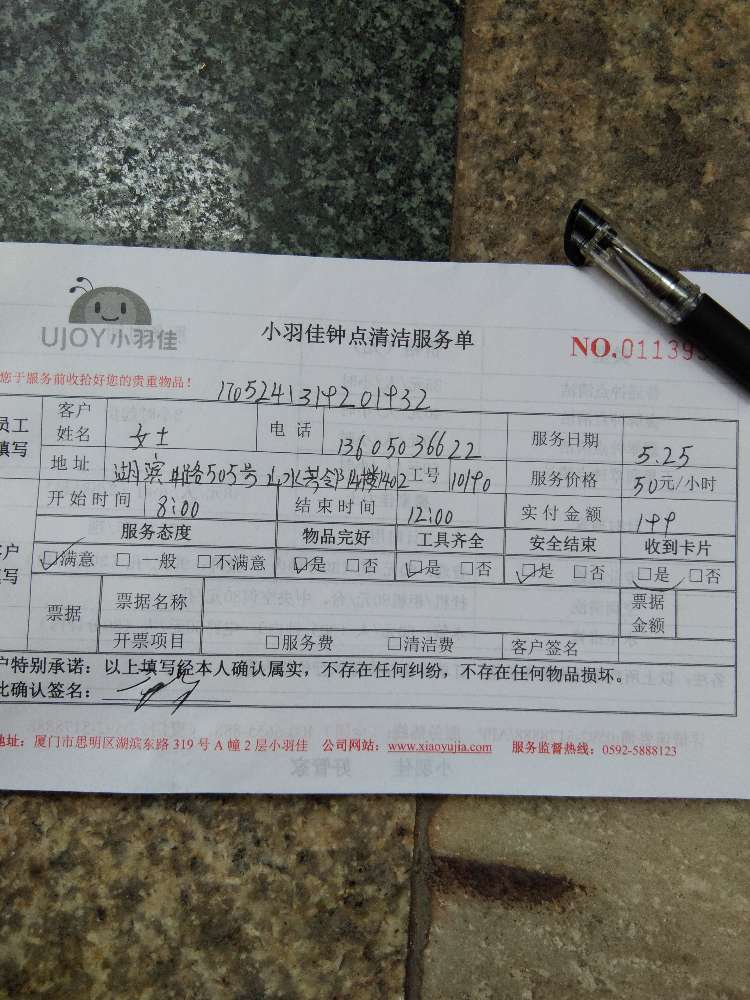 UJOY小羽佳
小羽佳钟点清洁服务单
NO.01139
您于服务前收拾好您的贵重物品！
员工 填写 客户姓名 女士 电话 13605036622 服务日期 5.25
地址 湖滨 路505号 4楼1402 工号 10190 服务价格 50元/小时
开始时间 8:00 结束时间 12:00 实付金额
服务态度 物品完好 工具齐全 安全结束 收到卡片
户 写 ☑满意 □一般 □不满意 ☑是 □否 ☑是 □否 ☑是 □否 ☑是 □否
票据 票据名称 票据金额
开票项目 □服务费 □清洁费 客户签名
户特别承诺：以上填写经本人确认属实，不存在任何纠纷，不存在任何物品损坏。
此确认签名：
地址：厦门市思明区湖滨东路 319 号 A 幢 2 层小羽佳 公司网站：www.xiaoyujia.com 服务监督热线：0592-5888123